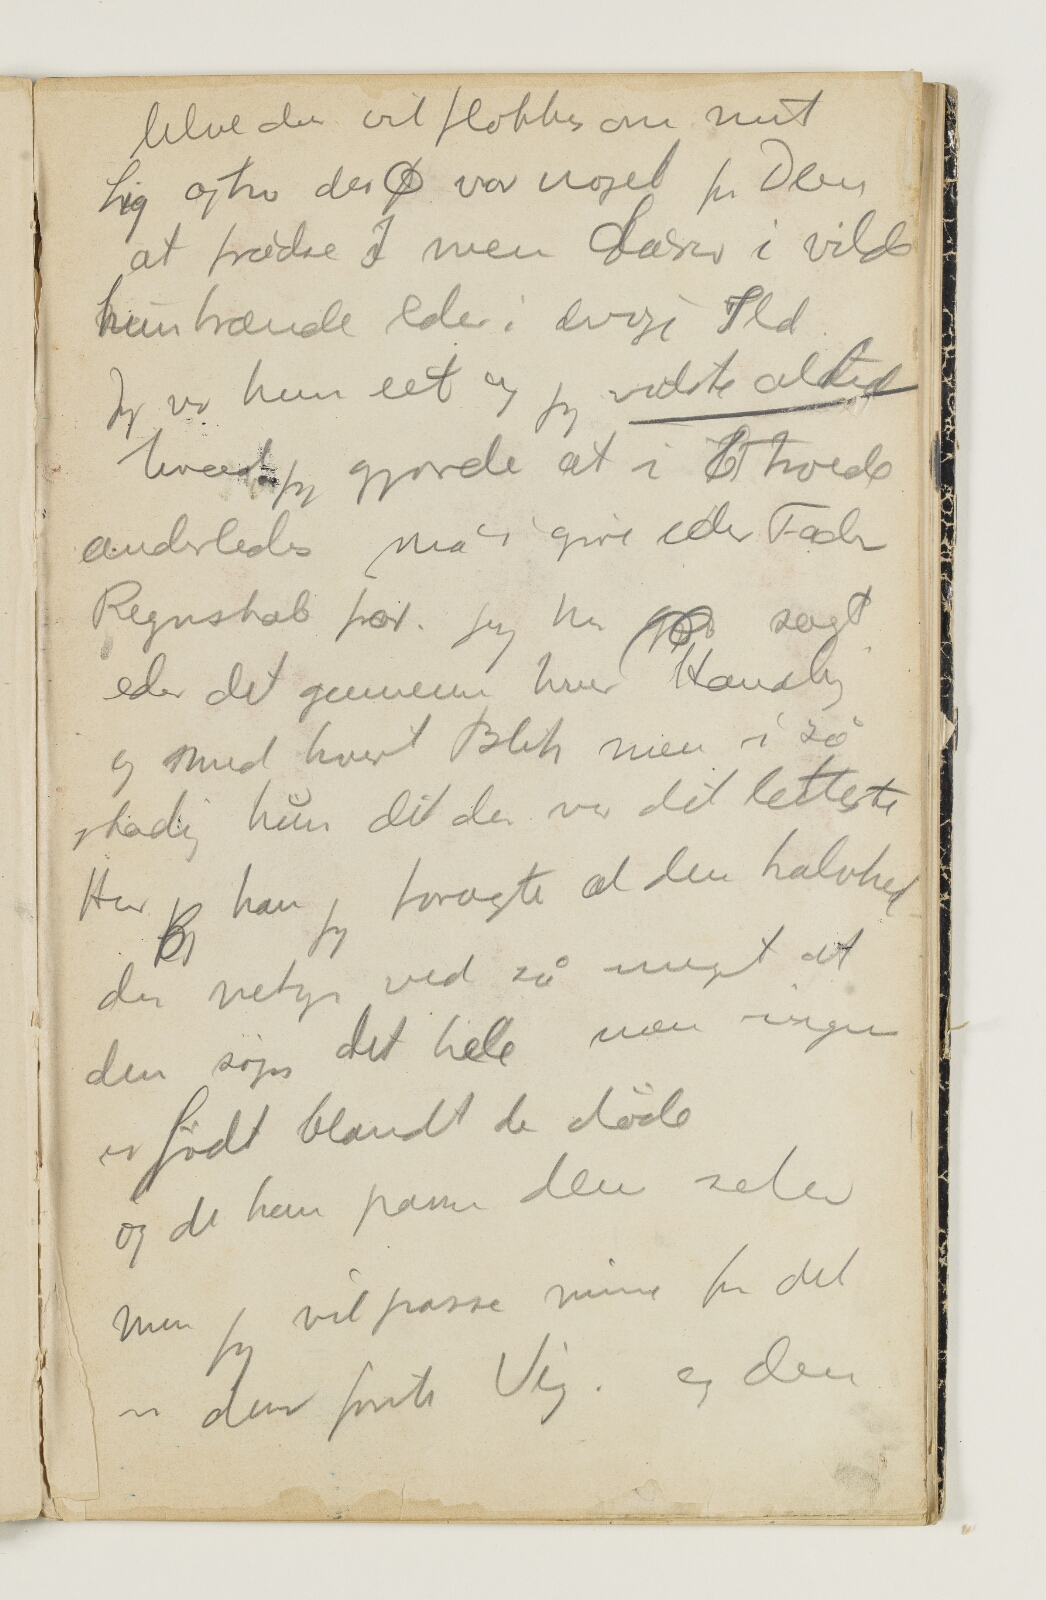 der vil flokkes om mit
Lig og tro der var noget for Dem
at frådse I men Læser i vilde
kun brænde eder i evig Ild
Jeg vr kun eet og jeg vidste altid
hvad jeg gjorde at i troede
anderledes må i give eder Fader
Regnskab for. jeg har sagt
eder det gennem hver Handling
og med hvert Blik men i så
stadig kun det der var det letteste
Her kan jeg foragte al den halvhed
der netop ved så meget at
den søges det hele men ingen
er født blandt de døde
og de kan passe dem selv
men jeg vil passe mine for det
er den Vej. og den